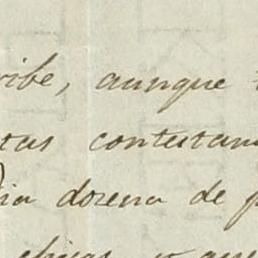 ribe, aunque
tas contestan
ia dozena de p